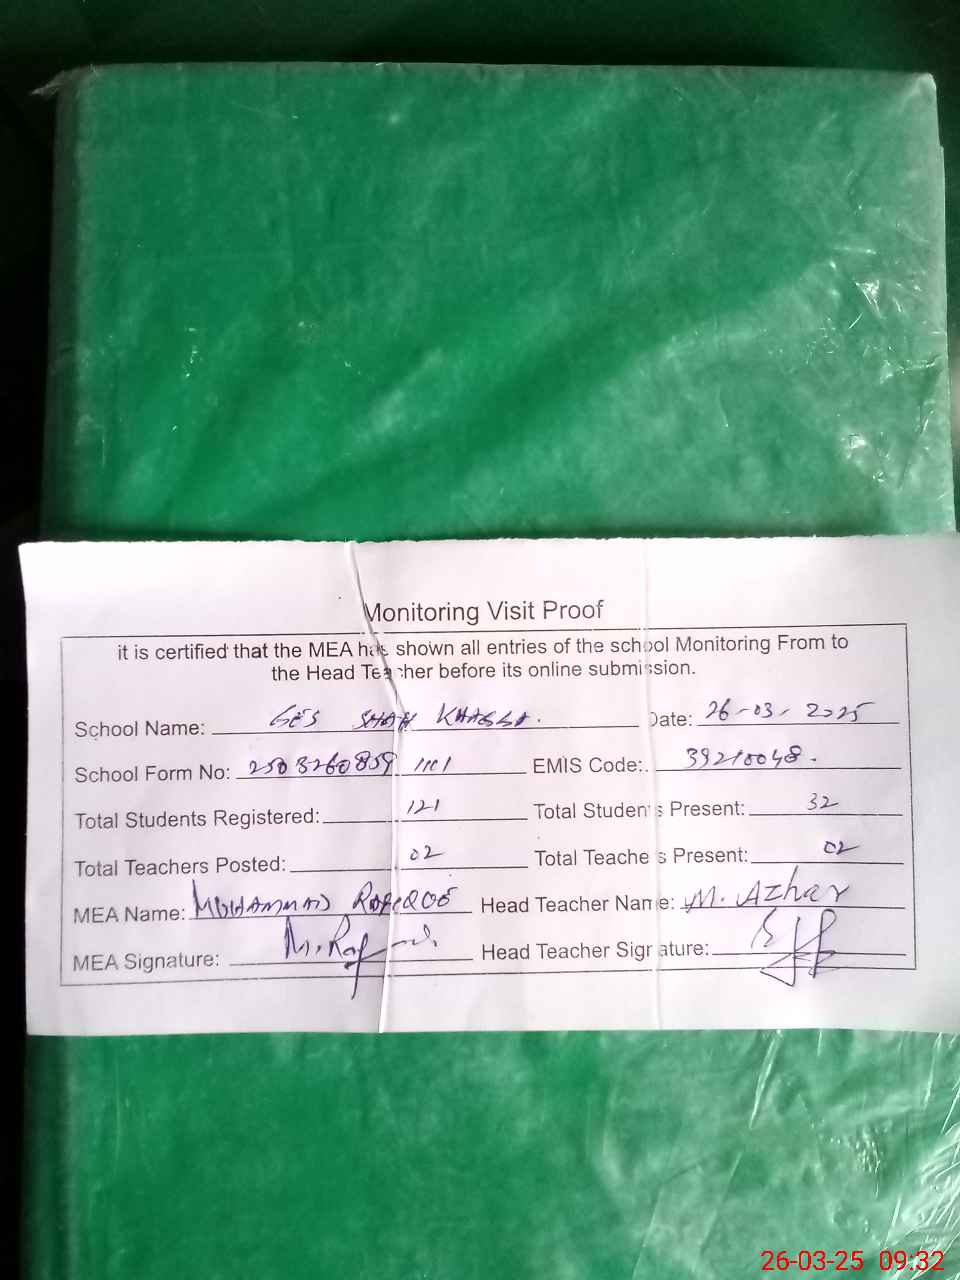 Monitoring Visit Proof
it is certified that the MEA has shown all entries of the school Monitoring From to
the Head Teacher before its online submission.
School Name: GES SHAH KHASSA. Date: 26-03-2025
School Form No: 2503260859 1101 EMIS Code: 39210048.
Total Students Registered: 121 Total Students Present: 32
Total Teachers Posted: 02 Total Teachers Present: 02
MEA Name: MUHAMMAD RAFEQUE Head Teacher Name: M. Azhar
MEA Signature: M. Raf Head Teacher Signature:
26-03-25 09:32